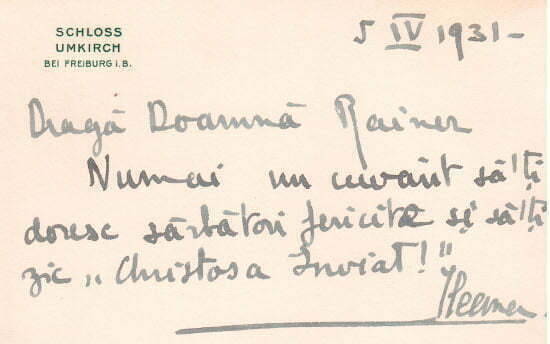 SCHLOSS
UMKIRCH
BEI FREIBURG i. B.
5 IV 1931 –
Dragă Doamnă Rainer
Numai un cuvânt să'ți
doresc sărbători fericite și să'ți
zic „Christos a Inviat!"
Ileana